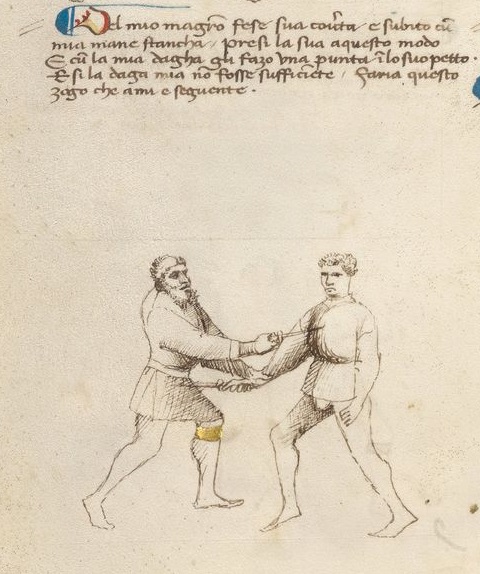 Del mio magro fese sua cov̄ta e subito cū
mia mane stancha / presi la sua a questo modo
E cū la mia dagha gli fazo una punta ī lo suo petto ·
E si la daga mia nō fosse sufficiēte / faria questo
zogo che a mi e seguente ·